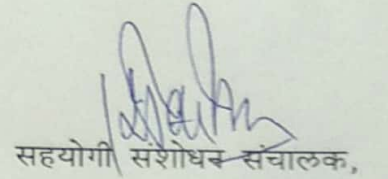 सहयोगी संशोधन संचालक,